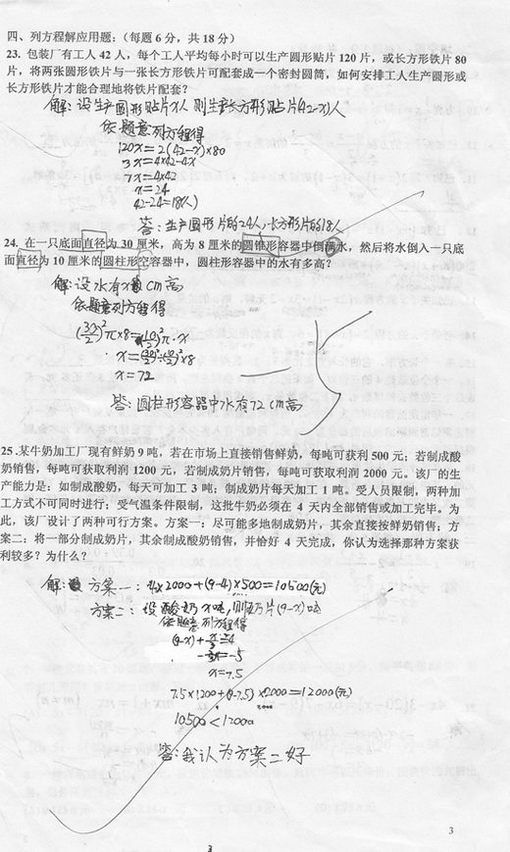 四、列方程解应用题：（每题 6 分，共 18 分）
23. 包装厂有工人 42 人，每个工人平均每小时可以生产圆形铁片 120 片，或长方形铁片 80
片，将两张圆形铁片与一张长方形铁片可配套成一个密封圆筒，如何安排工人生产圆形或
长方形铁片才能合理地将铁片配套？
解：设生产圆形贴片x人 则生产长方形贴片(42-x)人
依题意列方程得
120x=2(42-x)×80
3x=4×42-4x
7x=4×42
x=24
42-24=18(人)
答：生产圆形片的24人，长方形片的18人
24. 在一只底面直径为 30 厘米，高为 8 厘米的圆锥形容器中倒满水，然后将水倒入一只底
面直径为 10 厘米的圆柱形空容器中，圆柱形容器中的水有多高？
解：设水有x cm高
依题意列方程得
(30/2)²π×8=(10/2)²π·x
x=72
答：圆柱形容器中水有72cm高
25.某牛奶加工厂现有鲜奶 9 吨，若在市场上直接销售鲜奶，每吨可获利 500 元；若制成酸
奶销售，每吨可获取利润 1200 元，若制成奶片销售，每吨可获取利润 2000 元。该厂的生
产能力是：如制成酸奶，每天可加工 3 吨；制成奶片每天加工 1 吨。受人员限制，两种加
工方式不可同时进行；受气温条件限制，这批牛奶必须在 4 天内全部销售或加工完毕。为
此，该厂设计了两种可行方案。方案一：尽可能多地制成奶片，其余直接按鲜奶销售；方
案二：将一部分制成奶片，其余制成酸奶销售，并恰好 4 天完成，你认为选择那种方案获
利较多？为什么？
解： 方案一：4×2000+(9-4)×500=10500(元)
方案二：设酸奶x吨，则奶片(9-x)吨
依题意列方程得
(9-x)+x/3=4
-2/3x=-5
x=7.5
7.5×1200+(9-7.5)×2000=12000(元)
10500<12000
答：我认为方案二好
3